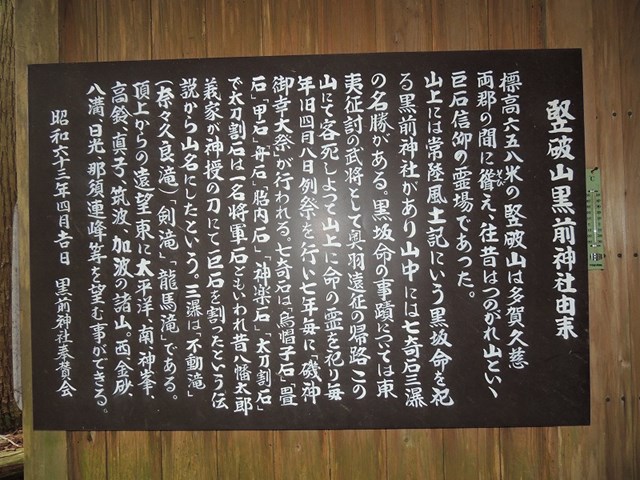 竪破山黒前神社由来
標高六五八米の竪破山は多賀久慈
両郡の間に聳え、往昔はつのがれ山といゝ
そび
巨石信仰の霊場であった。
山上には常陸風土記にいう黒坂命を祀
る黒前神社があり山中には七奇石三瀑
の名勝がある。黒坂命の事蹟については東
夷征討の武将として奥羽遠征の帰路この
山にて客死しよつて山上に命の霊を祀り毎
年旧四月八日例祭を行い七年毎に「磯神
御幸大祭」が行われる。七奇石は「烏帽子石」「畳
石」「甲石」「舟石」「胎内石」「神楽石」「太刀割石」
で太刀割石は一名将軍石ともいわれ昔八幡太郎
義家が神授の刀にて巨石を割ったという伝
説から山名にしたという。三瀑は「不動滝」
(奈々久良滝)「剣滝」「龍馬滝」である。
頂上からの遠望、東に太平洋、南、神峯、
高鈴、真弓、筑波、加波の諸山。西、金砂、
八溝、日光、那須連峰等を望む事ができる。
昭和六十三年四月吉日 黒前神社奉賛会